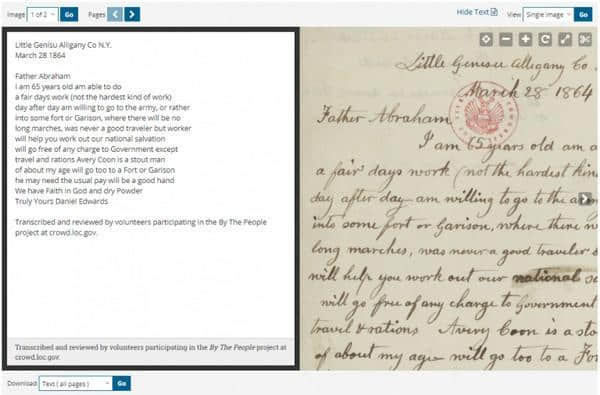 Image 1 of 2 Go Pages Hide Text View Single Image Go
Little Genisu Alligany Co N.Y.
March 28 1864
Father Abraham
I am 65 years old am able to do
a fair days work (not the hardest kind of work)
day after day am willing to go to the army, or rather
into some fort or Garison, where there will be no
long marches, was never a good traveler but worker
will help you work out our national salvation
will go free of any charge to Government except
travel and rations Avery Coon is a stout man
of about my age will go too to a Fort or Garison
he may need the usual pay will be a good hand
We have Faith in God and dry Powder
Truly Yours Daniel Edwards
Transcribed and reviewed by volunteers participating in the By The People
project at crowd.loc.gov.
Transcribed and reviewed by volunteers participating in the By The People project at
crowd.loc.gov.
Download: Text ( all pages ) Go
Little Genisee Allegany Co.
March 28 1864
Father Abraham
I am 65 years old am a
a fair days work (not the hardest kin
day after day am willing to go to the arm
into some fort or Garison, where there w
long marches, was never a good traveler
will help you work out our national s
will go free of any charge to Government
travel & rations Avery Coon is a sto
of about my age will go too to a For